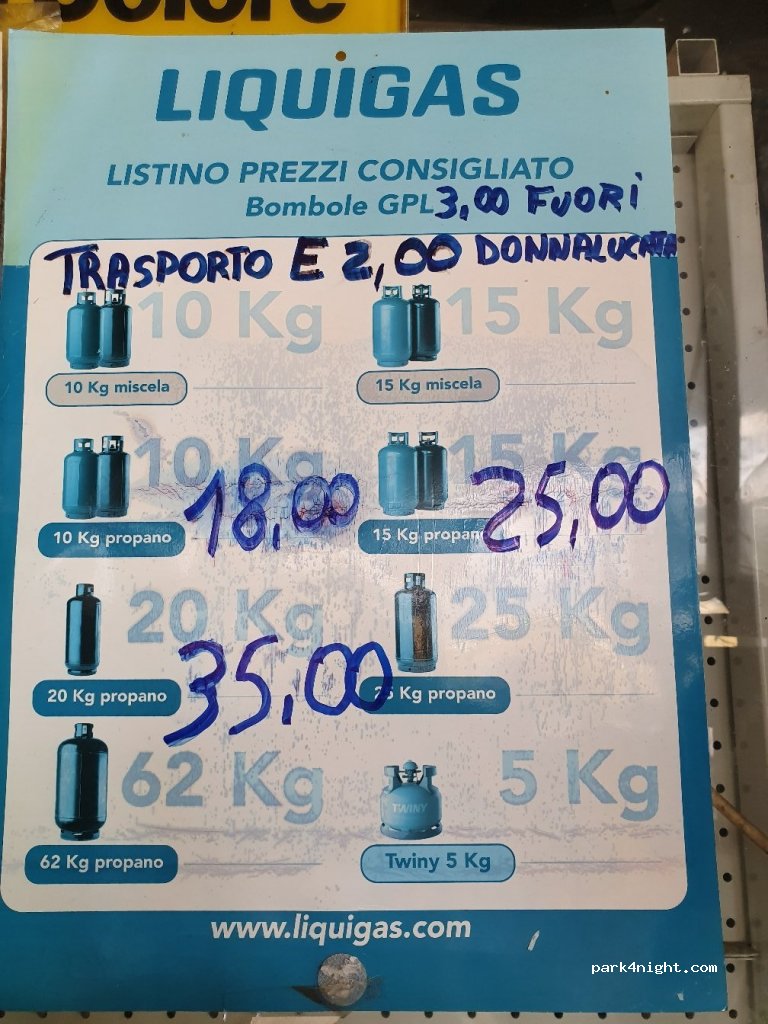 colore
LIQUIGAS
LISTINO PREZZI CONSIGLIATO
Bombole GPL 3,00 FUORI
TRASPORTO E 2,00 DONNALUCATA
10 Kg 15 Kg
10 Kg miscela 15 Kg miscela
10 Kg 15 Kg
10 Kg propano 18,00 15 Kg propan 25,00
20 Kg 25 Kg
20 Kg propano 35,00 25 Kg propano
62 Kg TWINY 5 Kg
62 Kg propano Twiny 5 Kg
www.liquigas.com
park4night.com